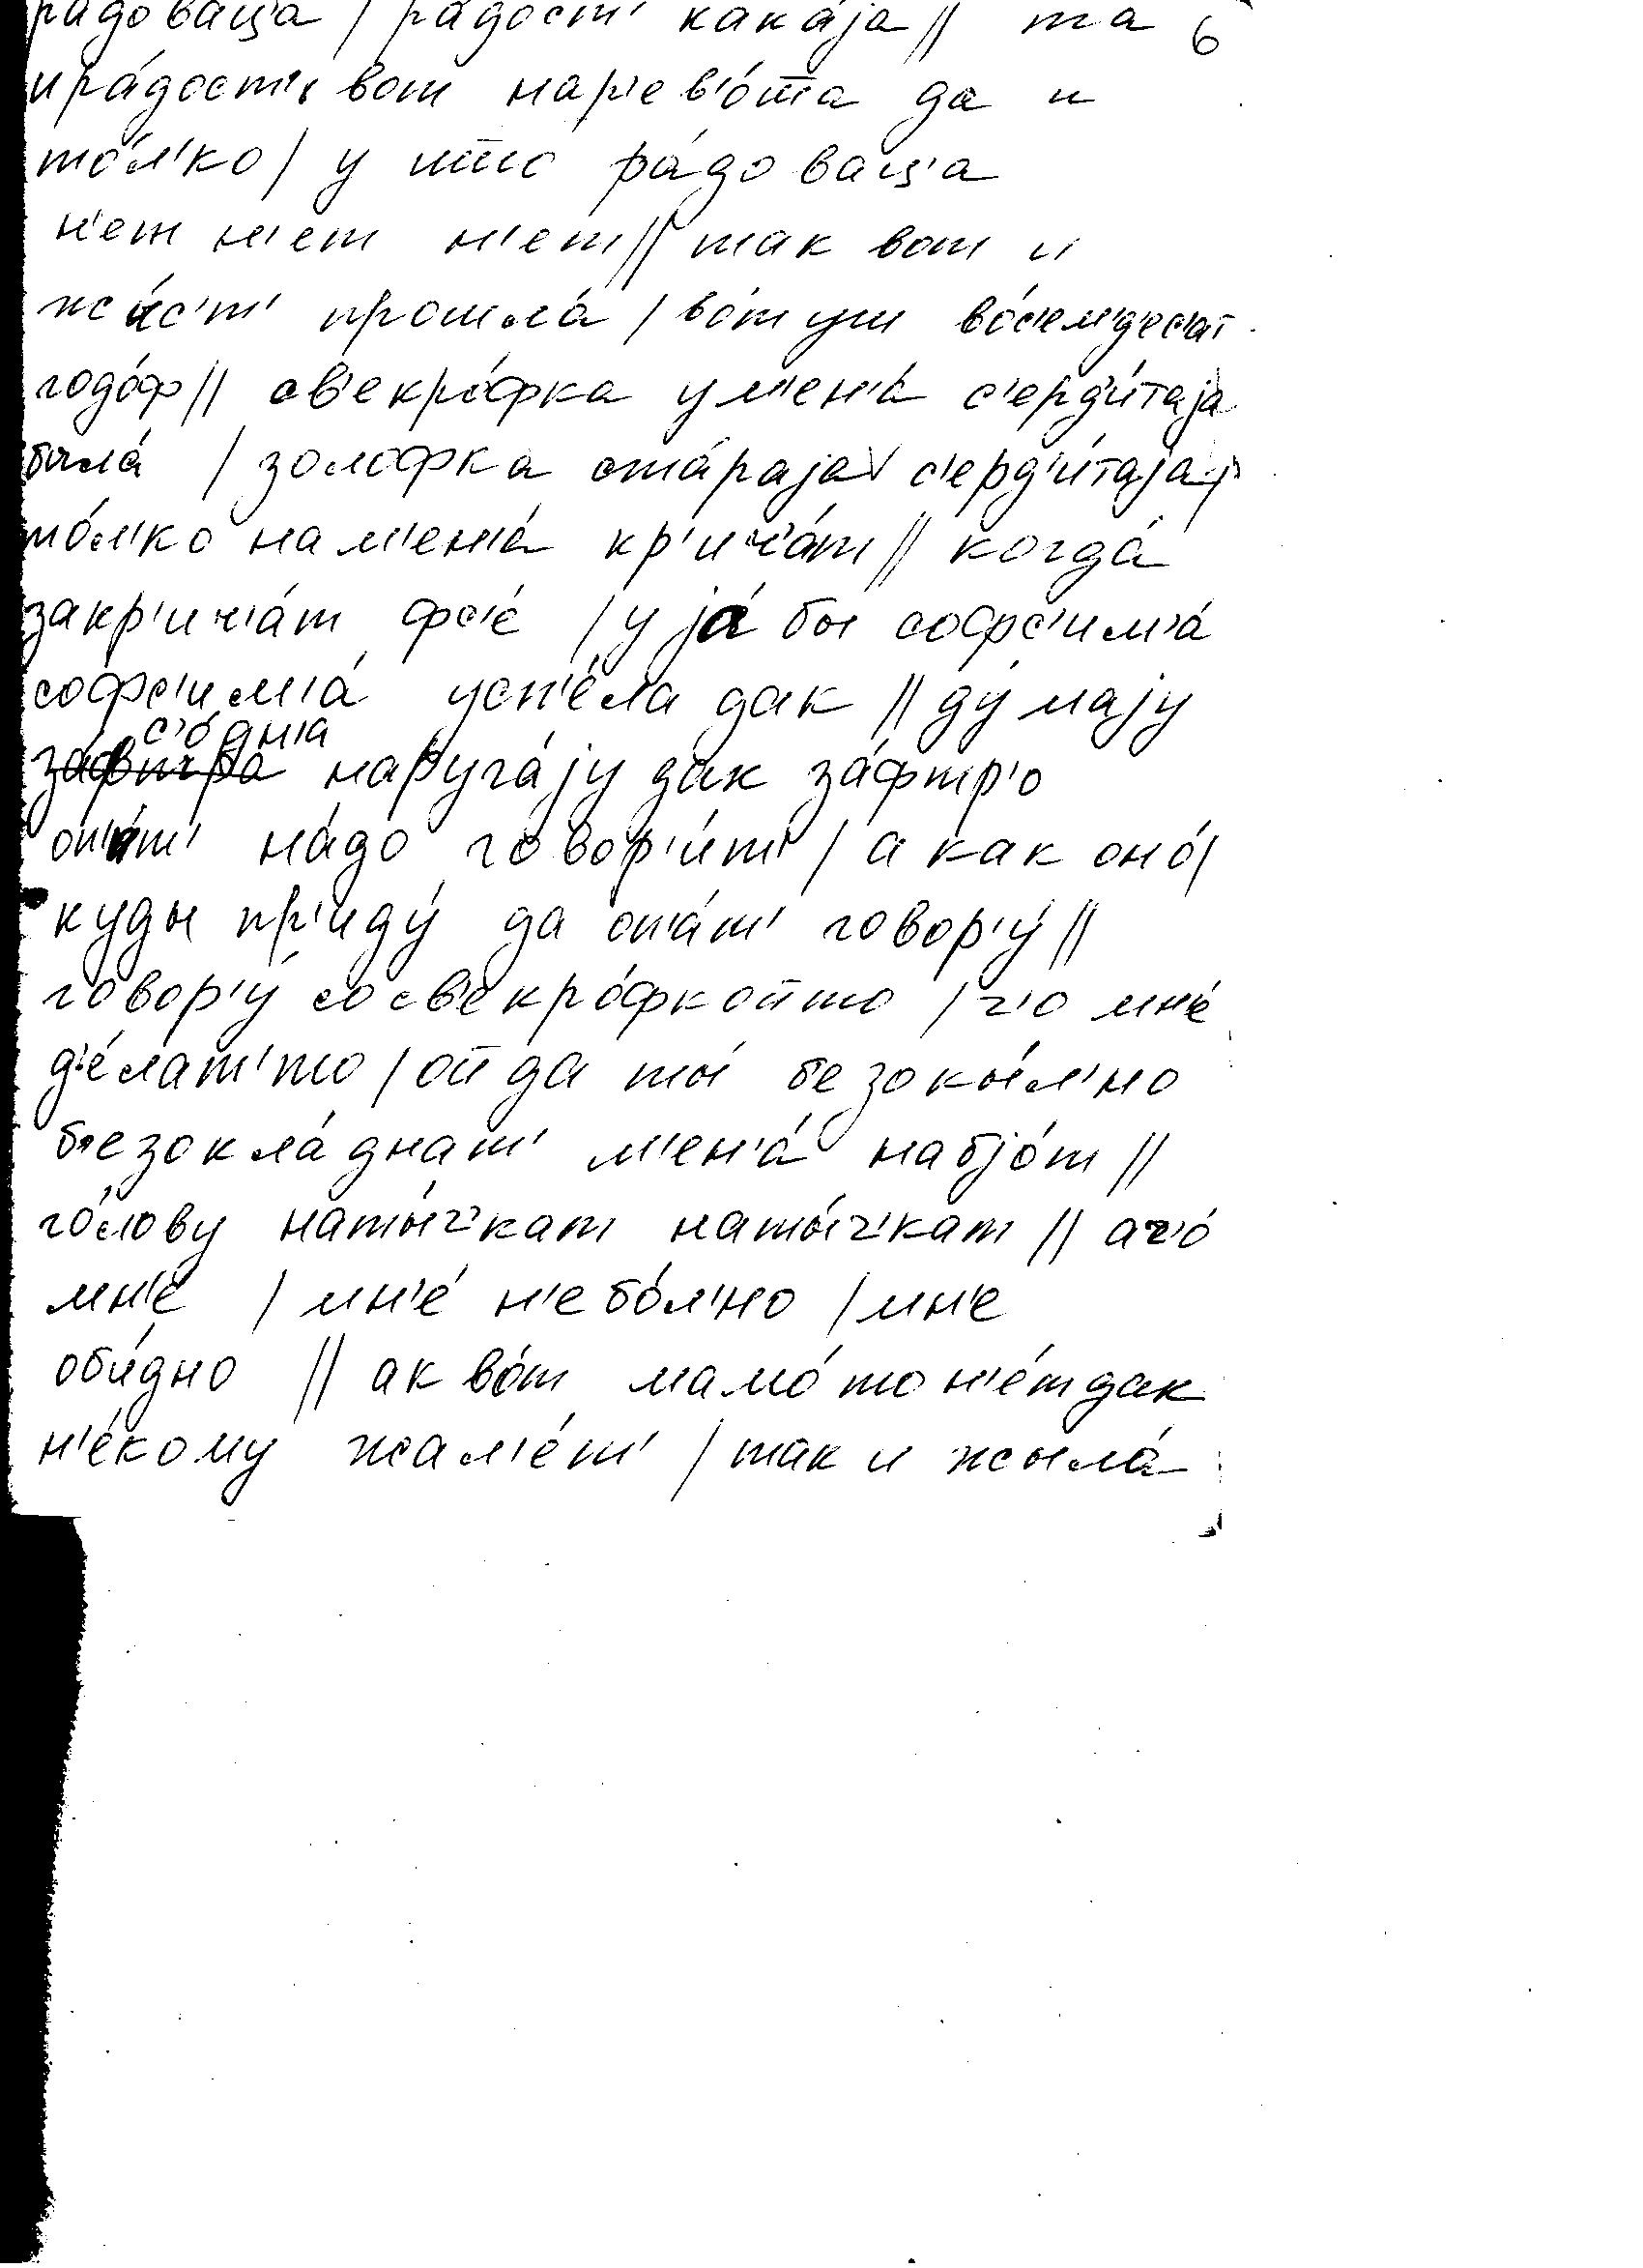 радоваца / радост' какаја // та 6
и ра́дост' вот нар'ев'о́та да и
то́л'ко / у што ра́доваца
н'ет н'ет н'ет // так вот и
жы́с'т' прошла́ / во́т уш во́с'ем'д'ес'ат
годо́ф // св'екро́фка у м'ен'а́ с'ерд'и́таја
была́ / золофка ста́раја с'ерд'и́таја /
то́л'ко на м'ен'а́ кр'ич'а́т // когда́
закр'ич'а́т фс'е́ / у ја́ бы софс'им'а́
софс'им'а́ усп'е́ла дак // ду́мају
с'о́дн'а
за́втра наруга́ју дак за́фтр'о
оп'а́т' на́до говор'и́т' / а как оно́ /
куды пр'иду́ да оп'а́т' говор'у́ //
говор'у́ со св'екро́фкойто / ч'о мн'е́
д'е́лат'то / ой да ты́ безокы́л'но
б'езокла́днат' м'ен'а́ набјо́т //
го́лову наты́ч'кат наты́ч'кат // а ч'о́
мн'е́ / мн'е́ н'е бо́л'но / мн'е
оби́дно // ак во́т мамо́то н'е́т дак
н'е́кому жал'е́т' / так и жыла́